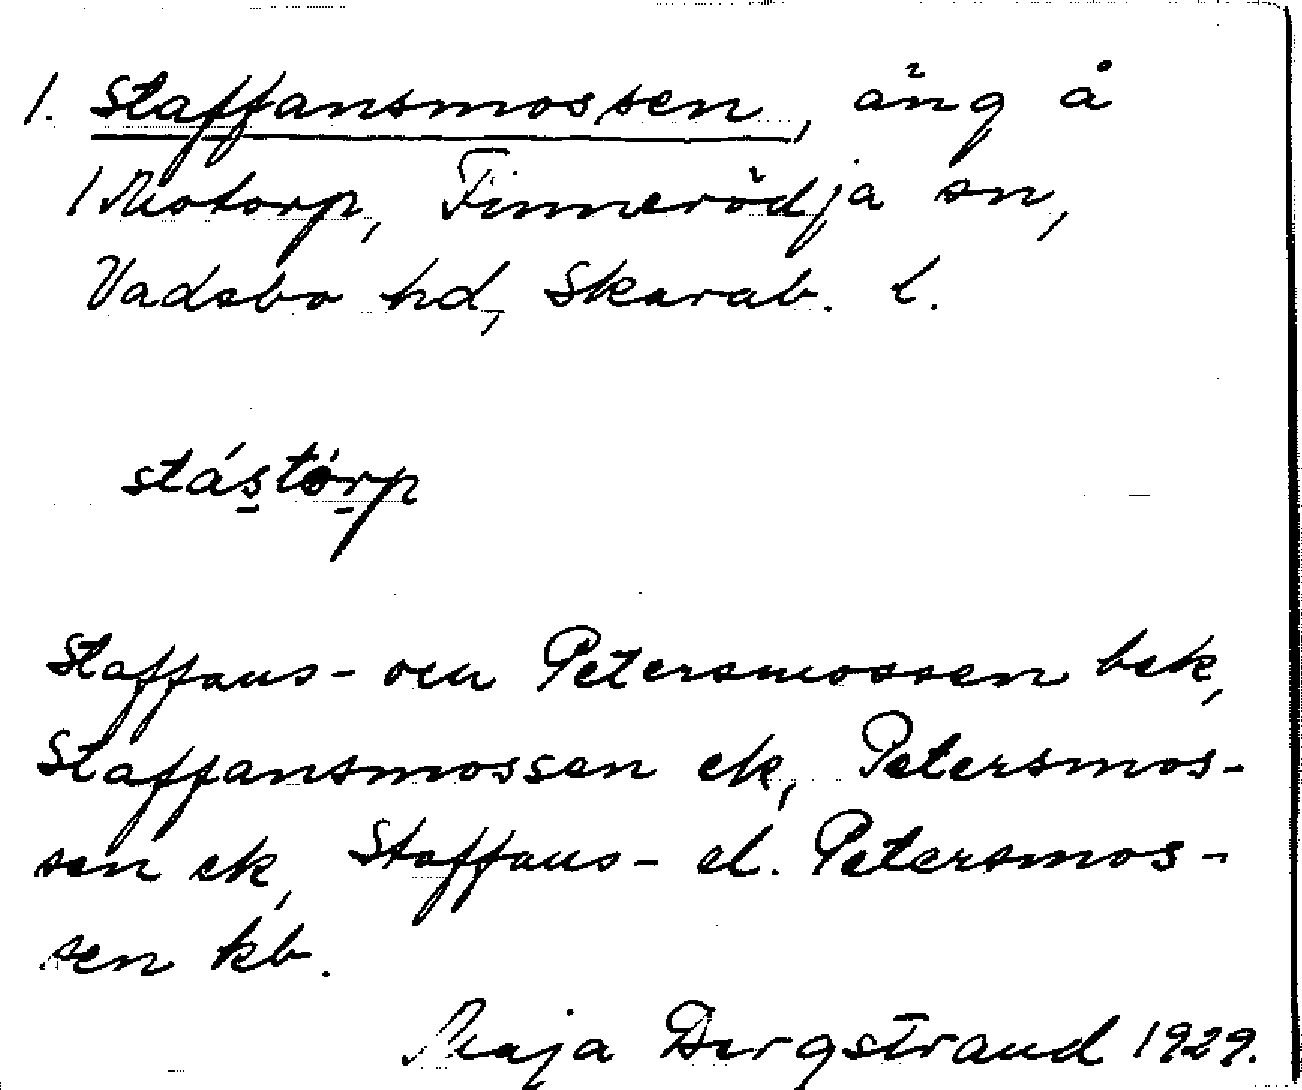 1. Staffansmossen, äng å
1 Motorp, Finnerödja sn,
Vadsbo hd, Skarab. l.
stástòrp
Staffans- ocu Petersmossen bek,
Staffansmossen ek, Petersmos-
sen ek, Staffans- el. Petersmos-
sen kb.
Maja Bergstrand 1929.